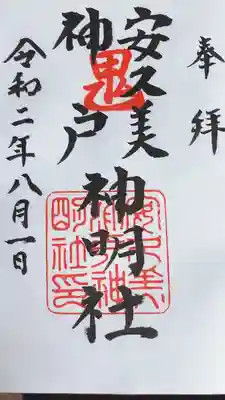 奉拝
安久美
神戸
神明社
令和二年八月一日